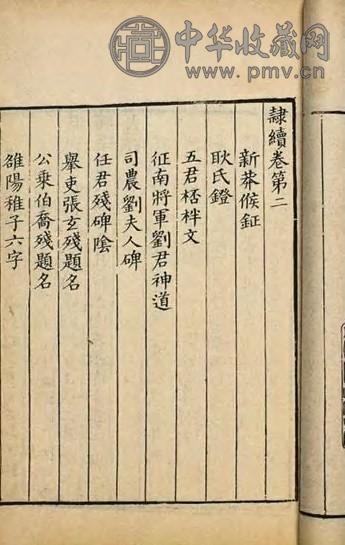 中华收藏网
www.pmv.cn
隸續卷第二
新莽候鉦
耿氏鐙
五君桮柈文
征南將軍劉君神道
司農劉夫人碑
任君殘碑陰
舉吏張玄殘題名
公乘伯喬殘題名
雒陽稚子六字